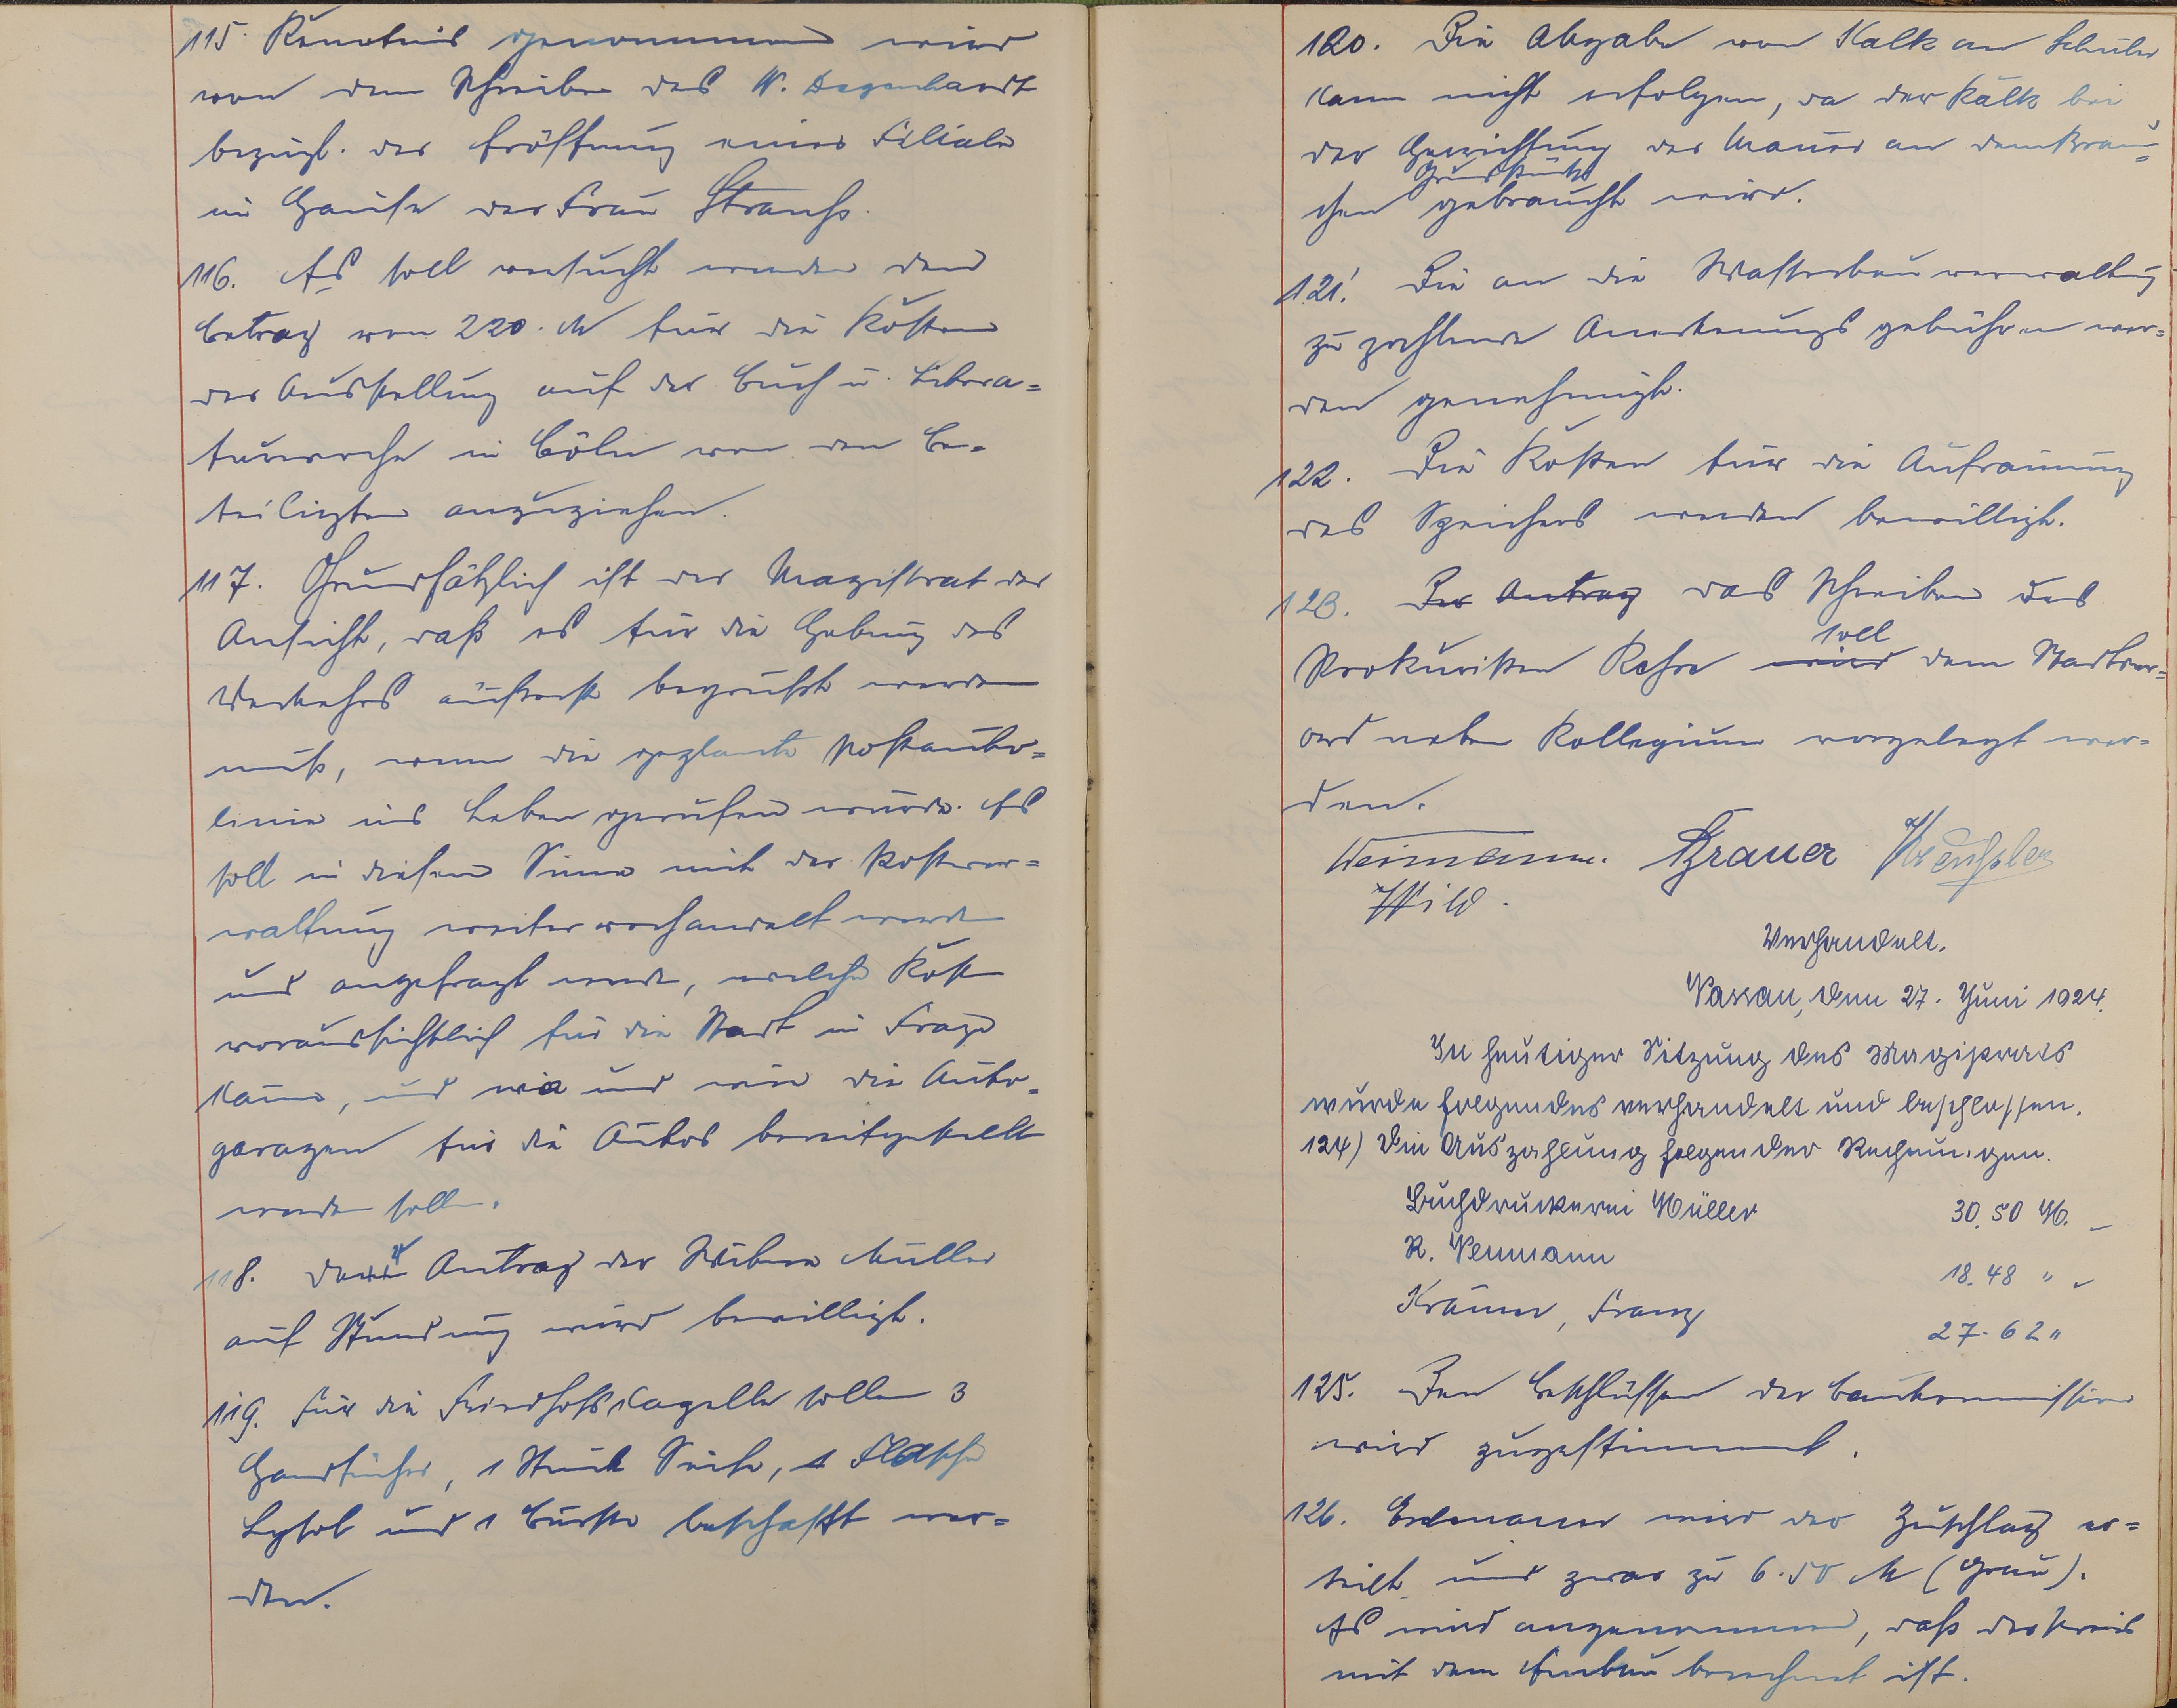 115. Kenntnis genommen wird
von dem Schreiben des W. Degenhardt
bezügl. der Eröffnung einer Filiale
im Hause der Frau Strauß.
116. Es soll versucht werden den
Betrag von 220. M für die Kosten
der Ausstellung auf der Buch u. Litera=
turwoche in Cöln von den Be=
teiligten einzuziehen.
117. Grundsätzlich ist der Magistrat der
Ansicht, daß es für die Hebung des
Verkehrs äußerst begrüßt werden
muß, wenn die geplante Postauto=
linie ins Leben gerufen würde. Es
soll in diesem Sinne mit der Postver=
waltung weiter verhandelt werden
und angefragt werden, welche Kosten
voraussichtlich für die Stadt in Frage
kämen, und wie und wo die Auto=
garagen für die Autos bereitgestellt
werden sollen.
118. Dem Antrag der Witwe Müller
auf Stundung wird bewilligt.
119. Für die Friedhofskapelle sollen 3
Handtücher, 1 Stück Seife, 1 Flasche
Lysol und 1 Bürste beschafft wer=
den.
120. Die Abgabe von Kalk an Schuler
kann nicht erfolgen, da der Kalk bei
der Herrichtung der Mauer an dem
Grundstück
schen gebraucht wird.
121. Die an die Wasserbauverwaltung
zu zahlende Anerkennungsgebühren wer=
den genehmigt.
122. Die Kosten für die Aufräumung
des Speichers werden bewilligt.
123. Der Antrag das Schreiben des
soll
Prokuristen wird dem Stadtver=
ordneten Kollegium vorgelegt wer=
den.
Weimann. Brauer
Wild.
Verhandelt.
Nassau, den 27. Juni 1924.
In heutiger Sitzung des Magistrats
wurde folgendes verhandelt und beschlossen.
124) Die Auszahlung folgender Rechnungen.
Buchdruckerei Müller 30.50 M.
R. 18.48 "
Franz 27.62 "
125. Den Beschlüssen der Baukommission
wird zugestimmt.
126. wird der Zuschlag er=
teilt und zwar zu 6.50 M (Grau).
Es wird angenommen, daß der Preis
mit dem Einbau berechnet ist.